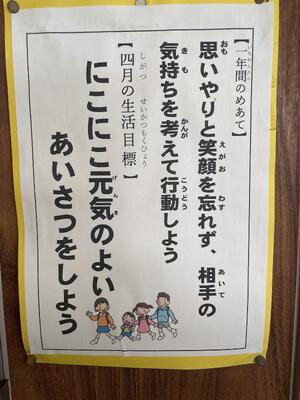 【一年間のめあて】
思いやりと笑顔を忘れず、相手の
気持ちを考えて行動しよう
【四月の生活目標】
にこにこ元気のよい
あいさつをしよう